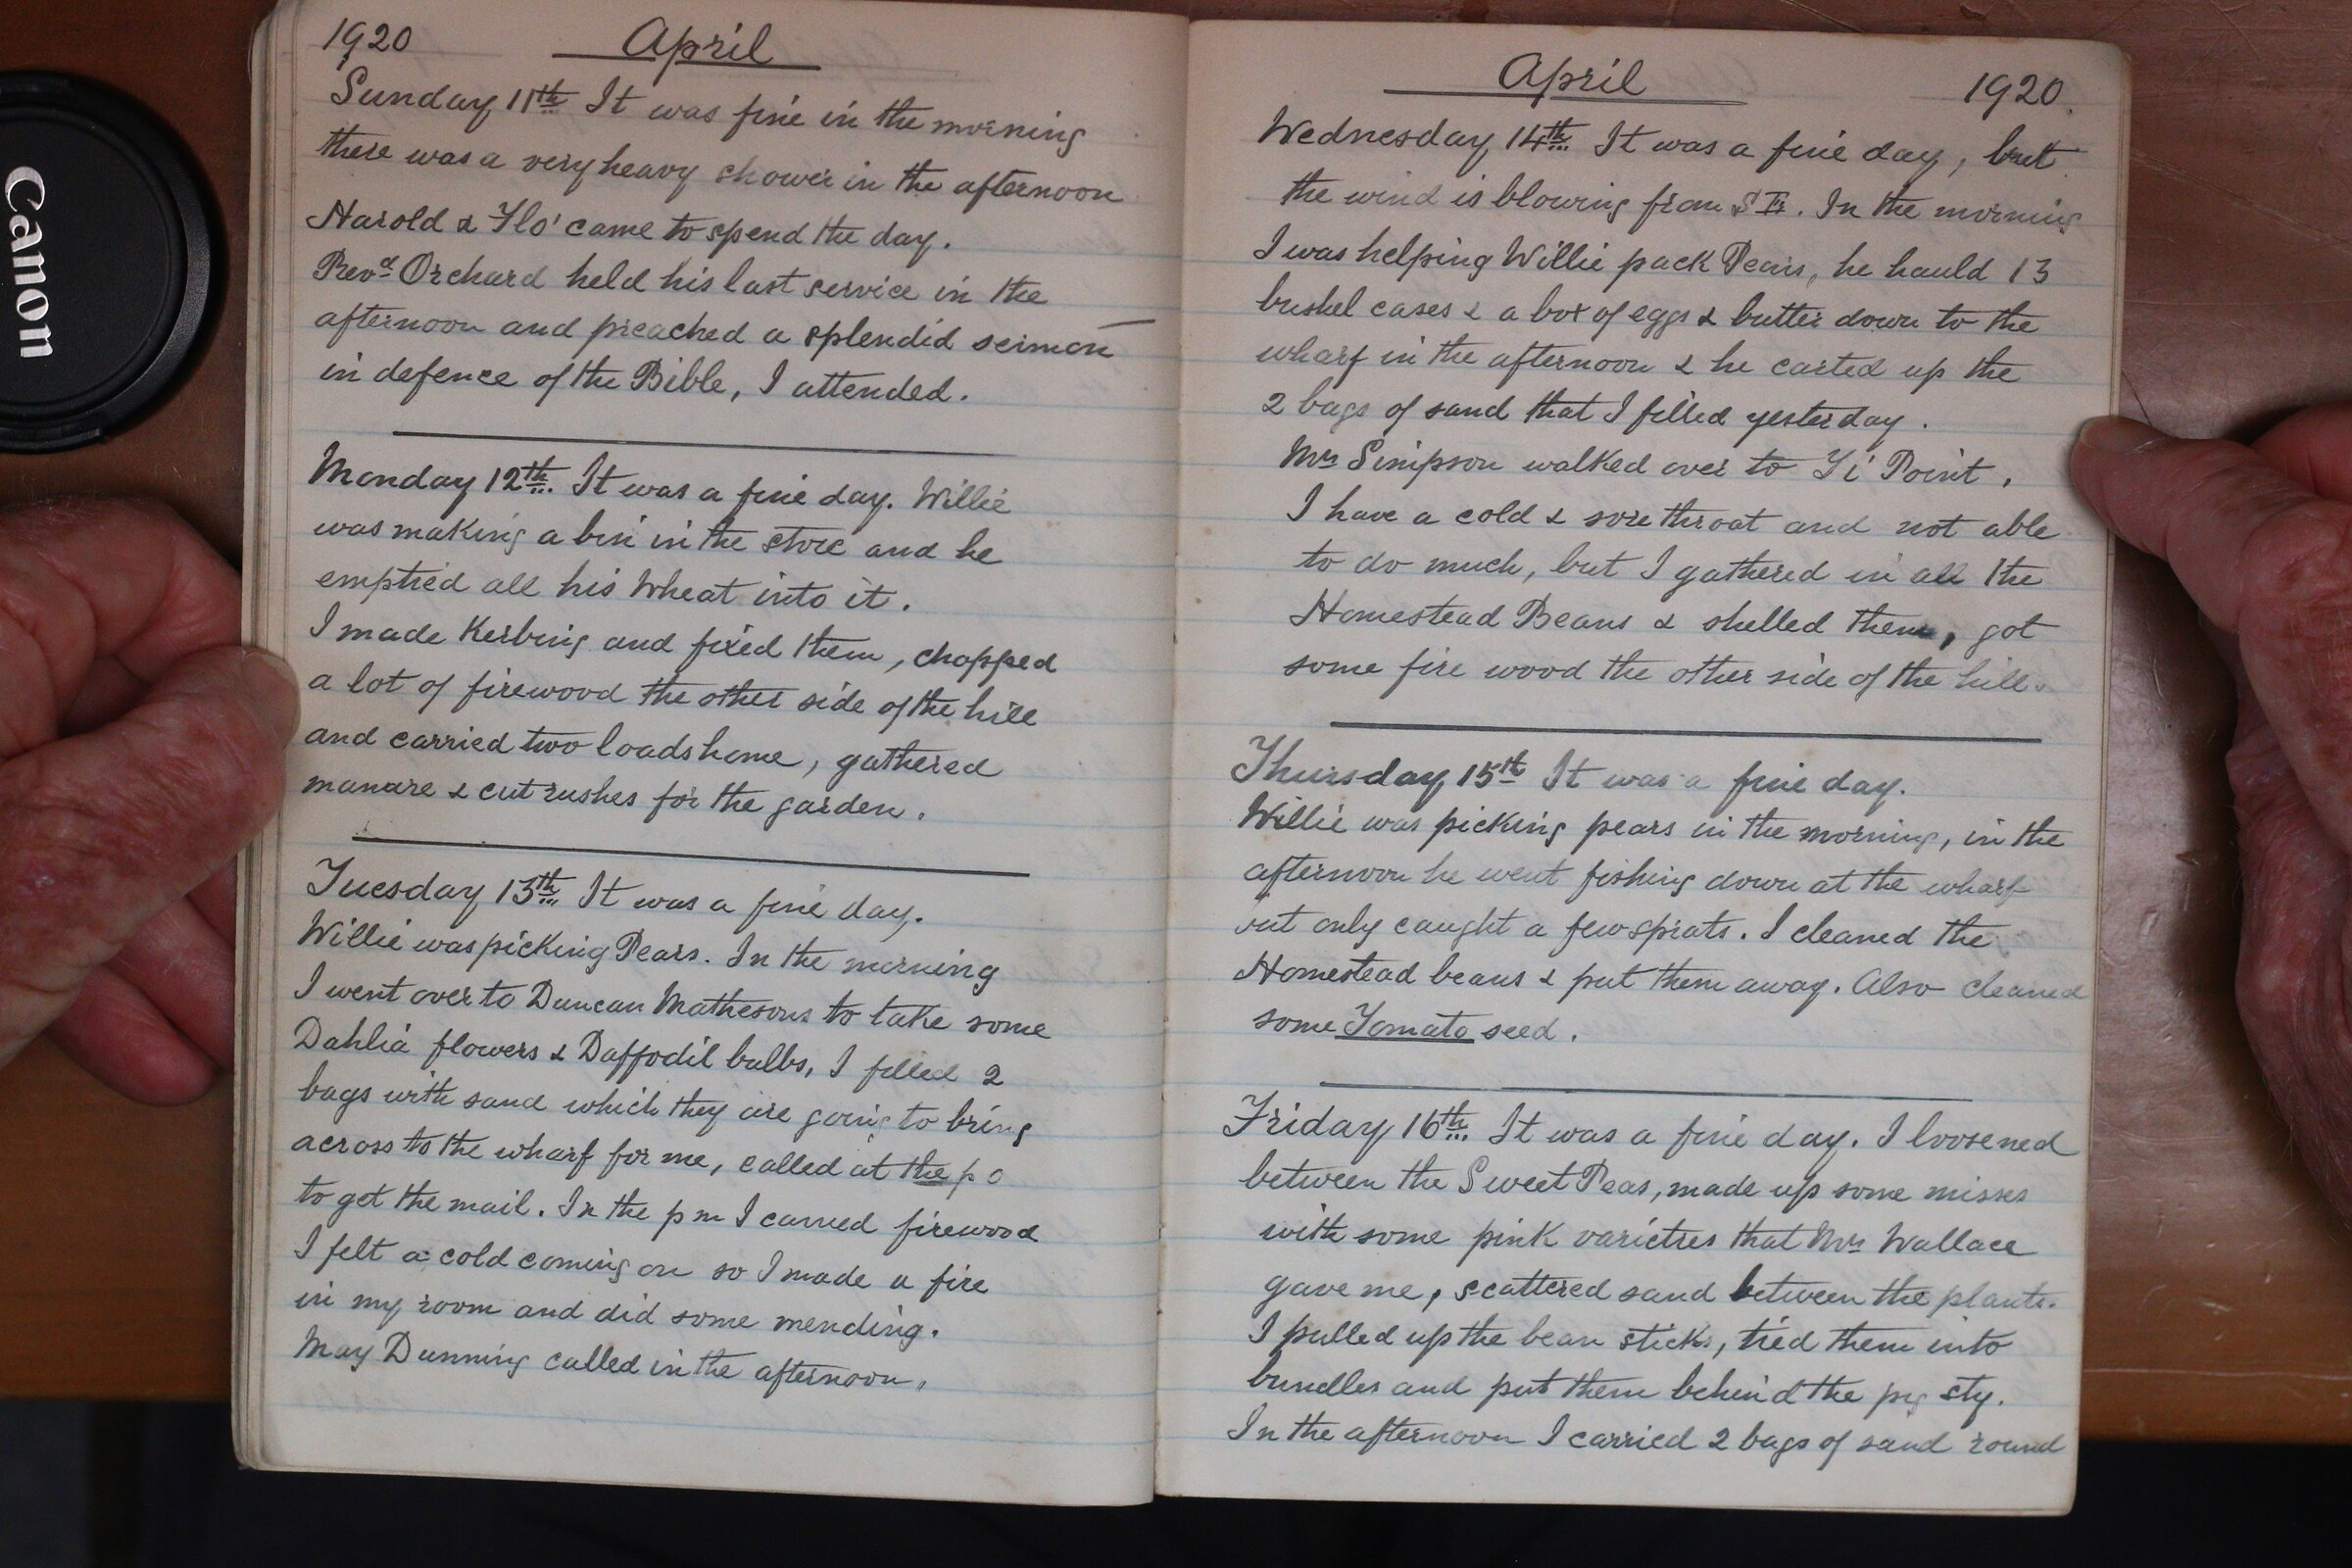 Canon
1920 April
Sunday 11th It was fine in the morning
there was a very heavy shower in the afternoon
Harold & Flo' came to spend the day.
Revd Orchard held his last service in the
afternoon and preached a splendid sermon
in defence of the Bible, I attended.
Monday 12th. It was a fine day. Willie
was making a bin in the store and he
emptied all his Wheat into it.
I made Kerbing and fixed them, chopped
a lot of firewood the other side of the hill
and carried two loads home, gathered
manure & cut rushes for the garden.
Tuesday 13th It was a fine day.
Willie was picking Pears. In the morning
I went over to Duncan Mathesons to take some
Dahlia flowers & Daffodil bulbs, I filled 2
bags with sand which they are going to bring
across to the wharf for me, called at the p o
to get the mail. In the p m I carried firewood
I felt a cold coming on so I made a fire
in my room and did some mending.
May Dunning called in the afternoon.
April 1920.
Wednesday 14th. It was a fine day, but
the wind is blowing from S . In the morning
I was helping Willie pack Pears, he hauld 13
bushel cases & a box of eggs & butter down to the
wharf in the afternoon & he carted up the
2 bags of sand that I filled yesterday.
Mrs Simpson walked over to Ti' Point.
I have a cold & sore throat and not able
to do much, but I gathered in all the
Homestead Beans & shelled them, got
some fire wood the other side of the hill.
Thursday 15th It was a fine day.
Willie was picking pears in the morning, in the
afternoon he went fishing down at the wharf
but only caught a few sprats. I cleaned the
Homestead beans & put them away. Also cleaned
some Tomato seed.
Friday 16th. It was a fine day. I loosened
between the Sweet Peas, made up some misses
with some pink varieties that Mrs Wallace
gave me, scattered sand between the plants.
I pulled up the bean sticks, tied them into
bundles and put them behind the pig sty.
In the afternoon I carried 2 bags of sand round